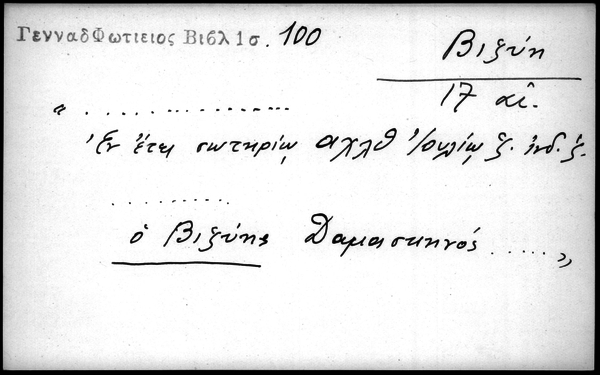 ΓενναδΦωτιειος Βιβλ 1σ. 100
Βιζύη
17 αἰ.
" . . . . . . . . . . . . . . .
Ἐν ἔτει σωτηρίῳ αχλθ Ἰουλίῳ ζ. ἰνδ. ζ.
. . . . . . . . . .
ὁ Βιζύης Δαμασκηνός . . . . . "